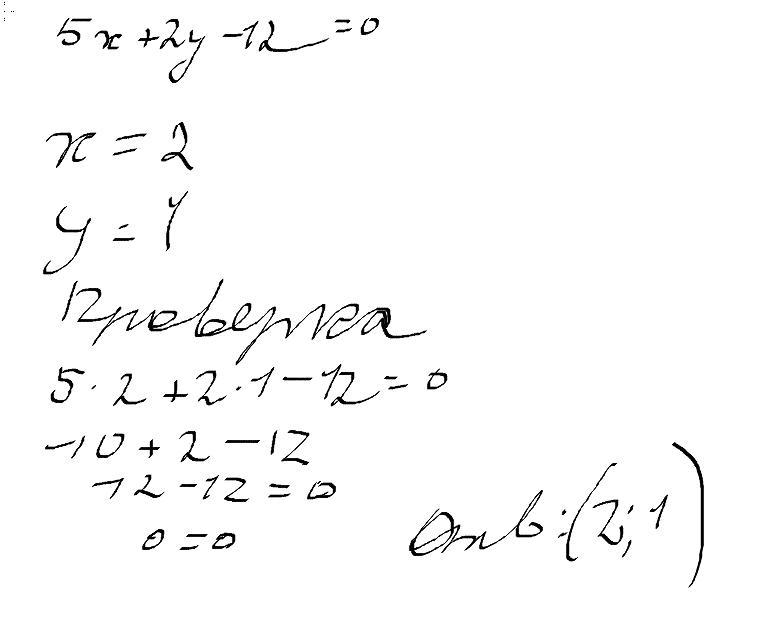 5x+2y-12=0
x=2
y=1
Проверка
5·2+2·1-12=0
10+2-12
12-12=0
0=0
Отв:(2;1)